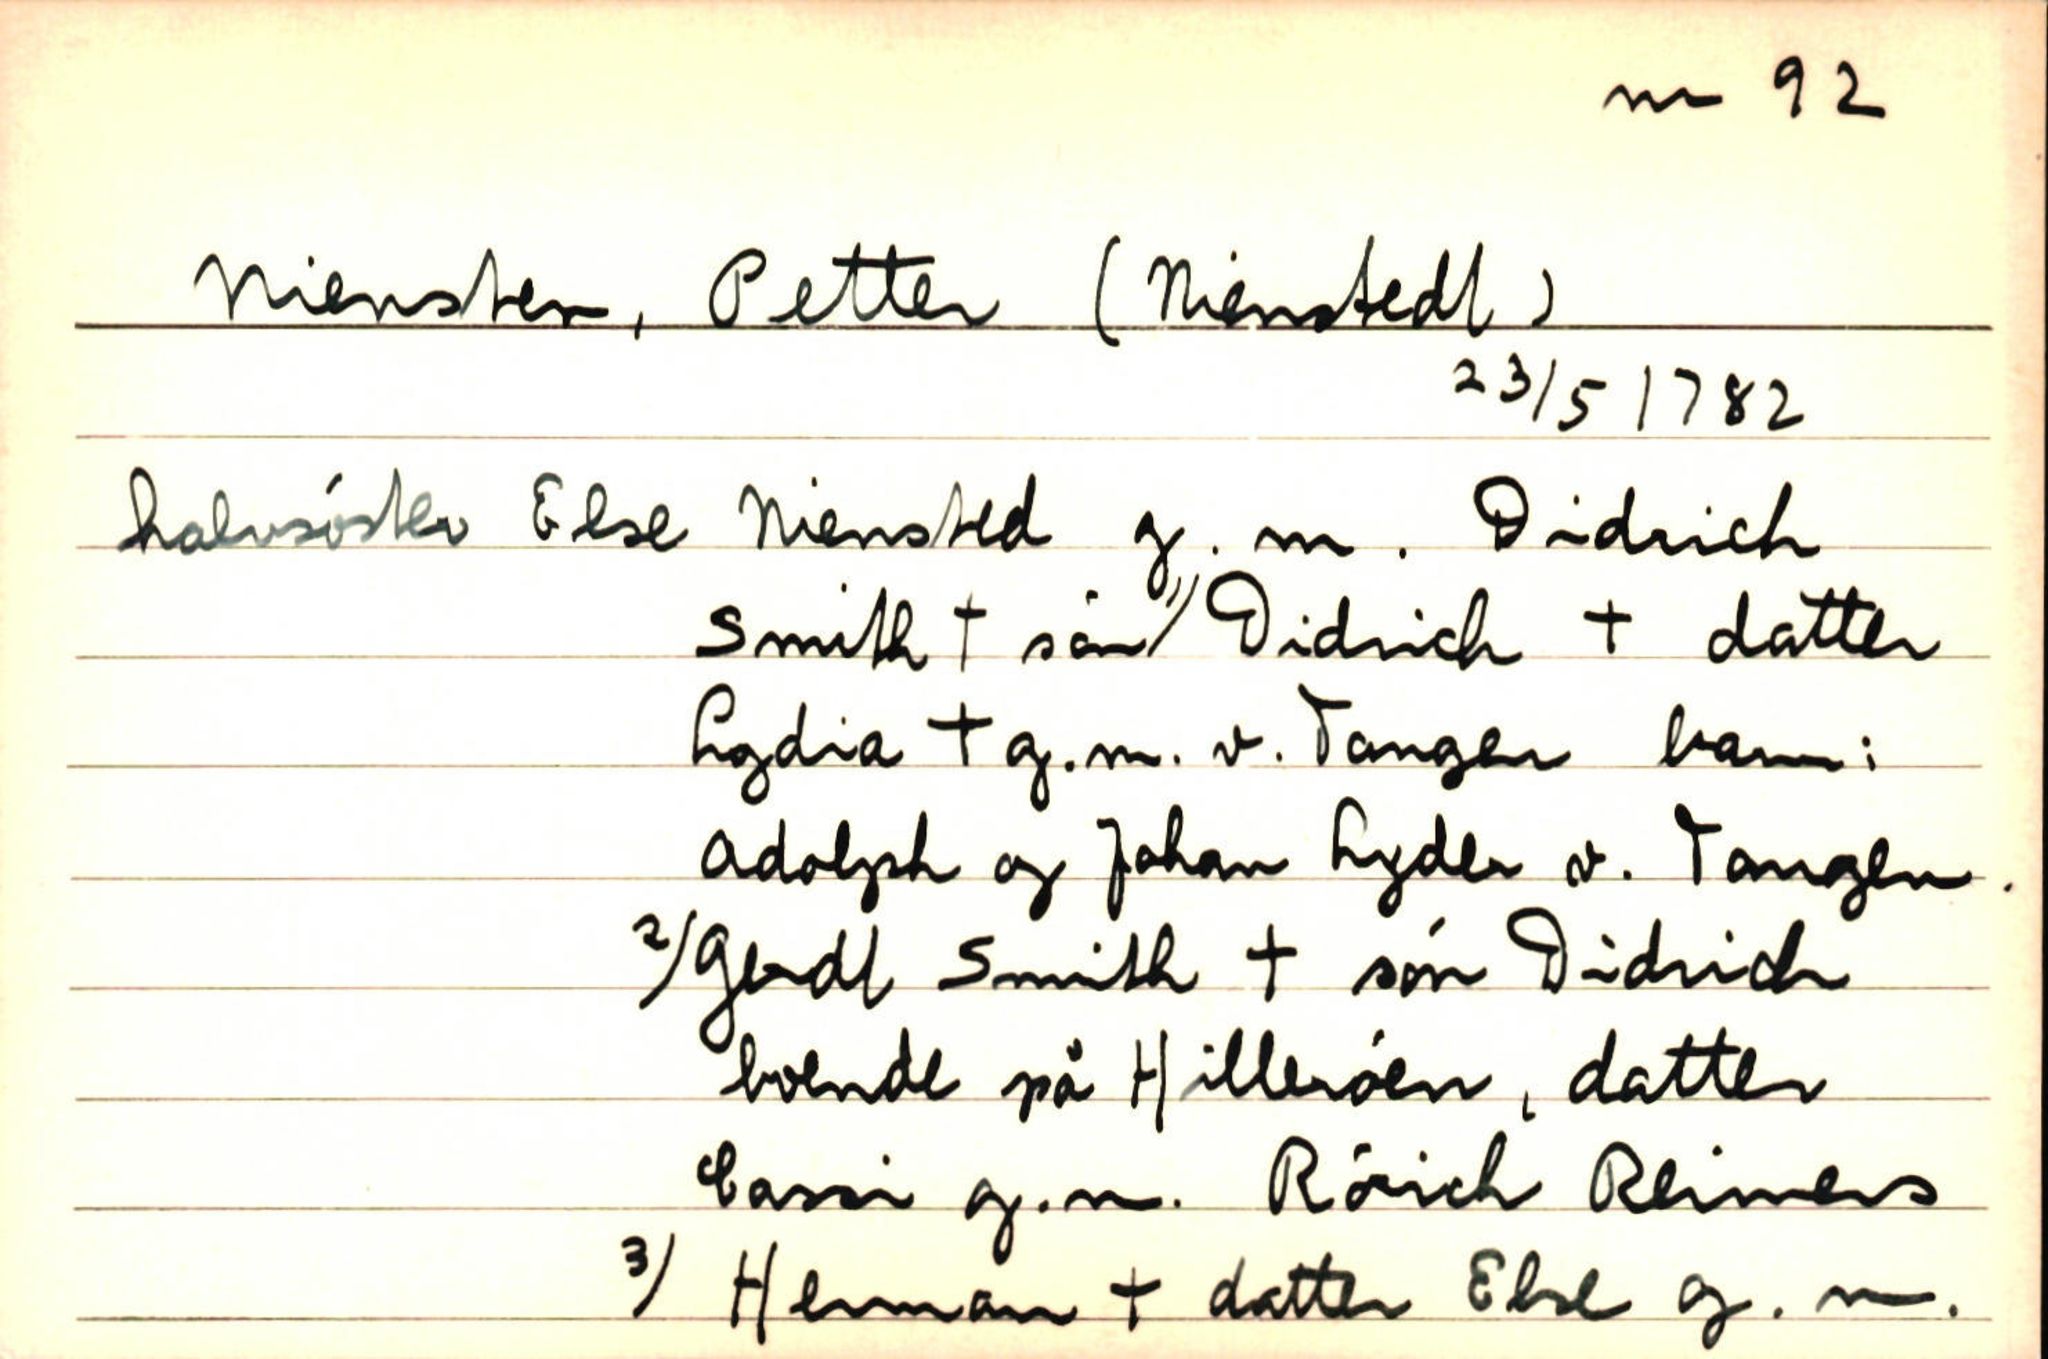 nr 92
Niensten, Petter (Nienstedt)
23/5 1782
halvsøster Else Niensted g.m. Didrich
Smith † søn 1/ Didrich † datter
Lydia † g.m. v. Tangen barn:
Adolph og Johan Lyder v. Tangen.
2/ Gerdt Smith † søn Didrich
boende på Hillerøen, datter
Cassi g.m. Rörich Reimers
3/ Herman † datter Else g.m.